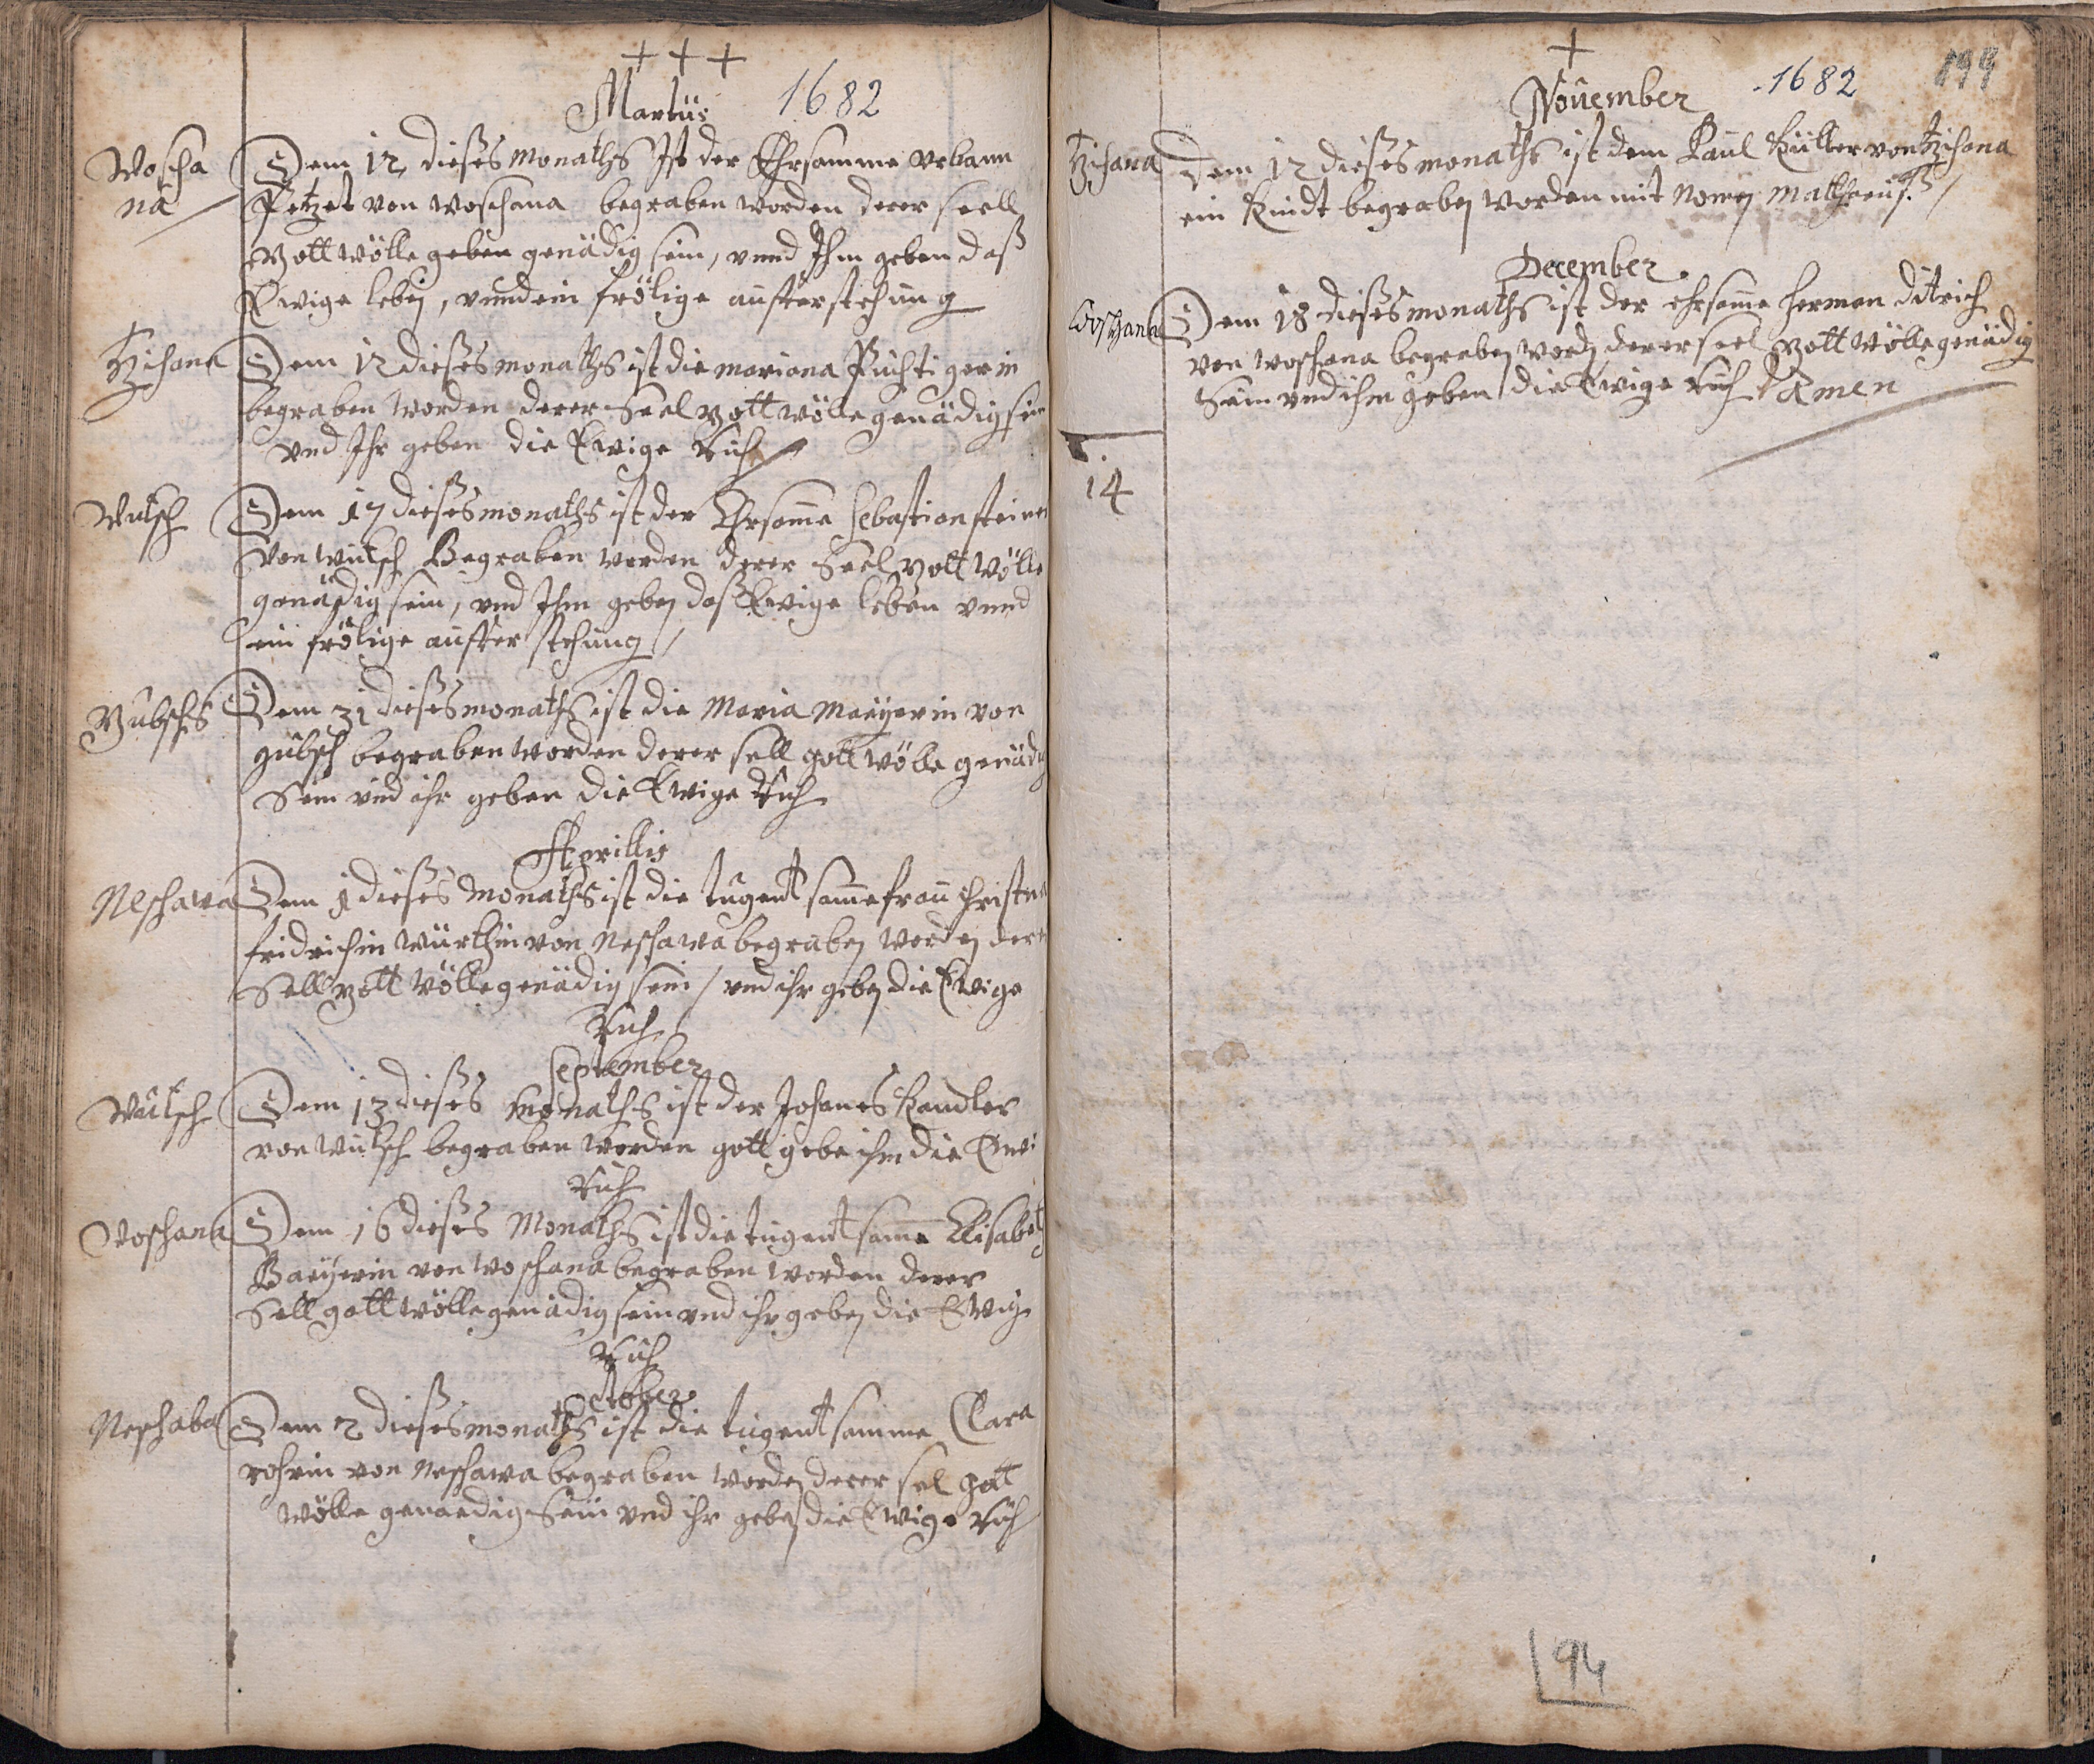 + + +
Martius 1682
Woscha
na
Dem 12 dieses Monaths Ist der Ehrsamme Vrbann
Petzet von Woschana begraben worden derer seell
Gott wölle geben genädig sein, vnnd Ihm geben daß
Ewige leben, vnnd ein frölige aufferstehung
Tzischana
Dem 12 dieses monaths ist die mariana Puchtigerin
begraben worden derer Seel Gott wölle genädig sein
vnd Ihr geben die Ewige Ruh
Wutsch
Dem 17 dieses monaths ist der Ehrsame Sebastian steiner
von wutsch Begraben worden derer Seel Gott wölle
genädig sein, vnd Ihm geben daß Ewige leben vnnd
ein frölige aufferstehung
Gubsch
Dem 31 dieses monaths ist die Maria Mayerin von
gubsch begraben worden derer sell gott wölle genädig
Sein vnd ihr geben die Ewige Ruh
Aprillis
Neschawa
Dem 1 dieses Monaths ist die tugent same frau christina
fridrichin würthin von Neschawa begraben worden derer
Sell Gott wölle genädig sein / vnd ihr geben die Ewige
Ruh
September
Wutsch
Dem 13 dieses monaths ist der Johanes Kandler
von wutsch begraben worden gott gebe ihm die Ewi
Ruh
Woschana
Dem 16 dieses Monaths ist die tugent same Elisabet
Bayerin von woschana begraben worden derer
Sell gott wölle genädig sein vnd ihr geben die Ewige
Ruh
October
Neschaba
Dem 2 dieses monaths ist die tugent samme Clara
rohrin von Neschawa begraben worden derer sel gott
wölle genaedig Sein vnd ihr geben die Ewige Ruh
+
November 1682
Tzischana
Dem 12 dieses monaths ist dem Paul von Tzischana
ein Kindt begraben worden mit Nomen Mattheus.
December
Woschana
Dem 18 dieses monaths ist der ehrsame herman ditrich
von woschana begraben word derer seel Gott wölle genädig
Sein vnd ihm geben die Ewige Ruh Amen
14
94